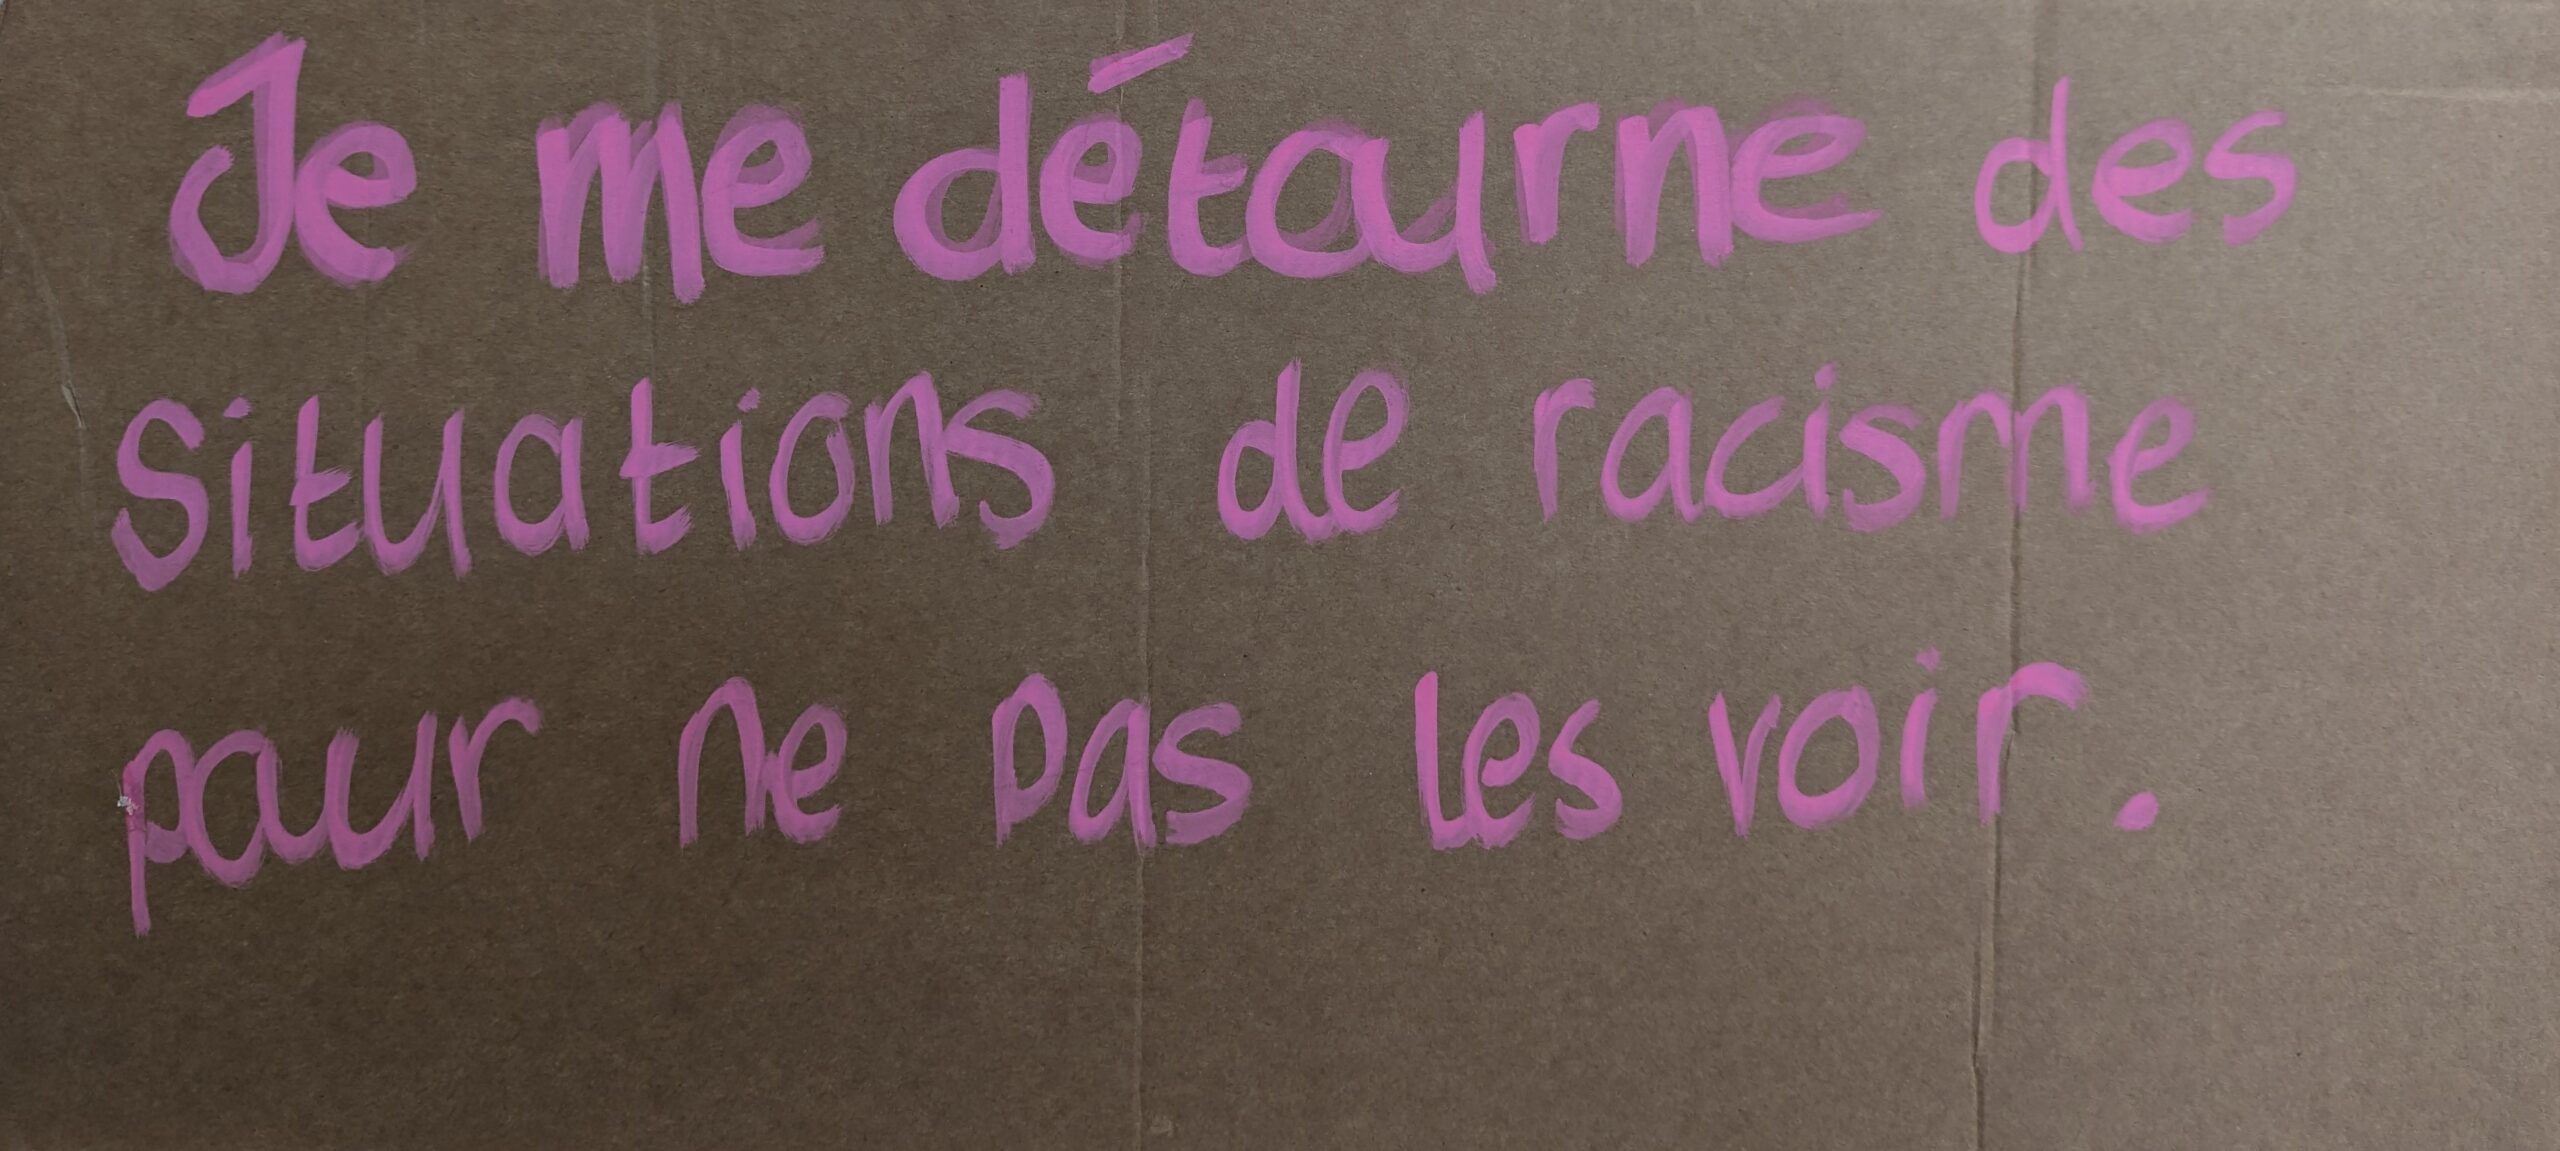 Je me détourne des
situations de racisme
pour ne pas les voir.